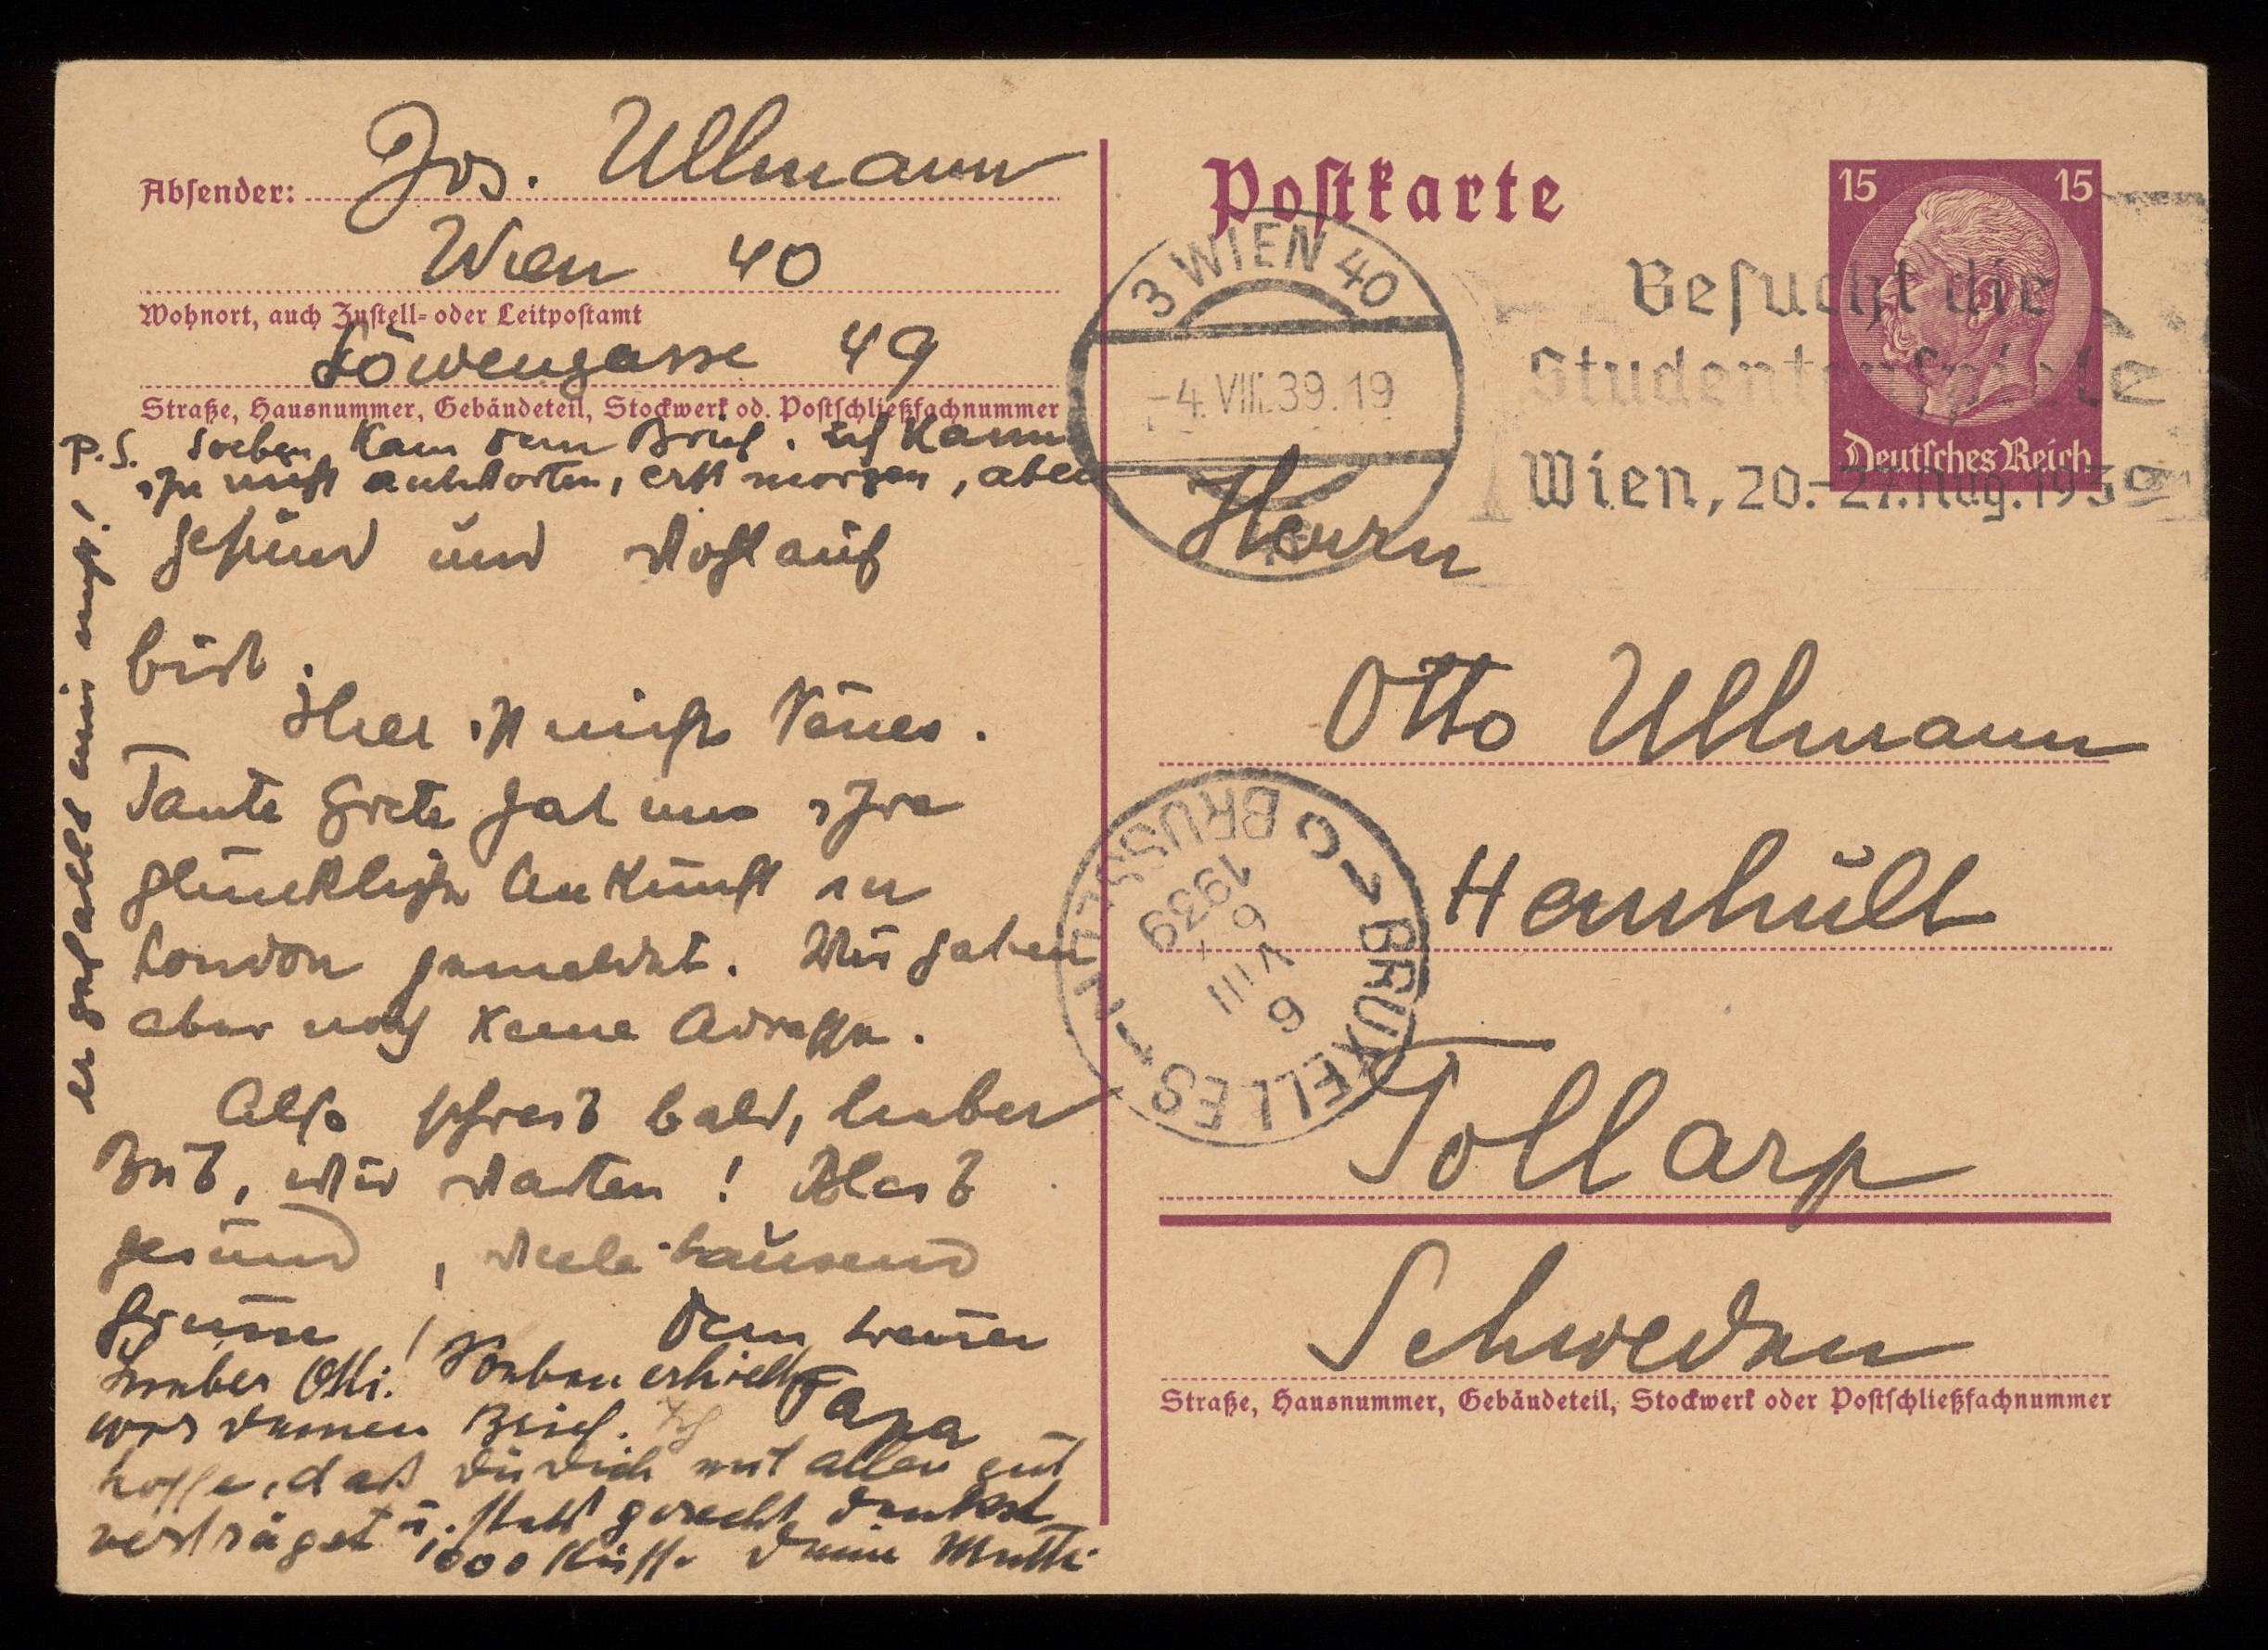 Absender: Jos. Ullmann
Wien 40
Wohnort, auch Zustell- oder Leitpostamt
Löwengasse 49
Straße, Hausnummer, Gebäudeteil, Stockwerk od. Postschließfachnummer
P.S. Soeben kam dein Brief. Ich kann
ihn nicht antworten, erst morgen, aber
er gefallt mir nicht!
gesund und wohlauf
bist.
Hier ist nichts Neues.
Tante Grete hat uns ihre
glückliche Ankunft in
London gemeldet. Wir haben
aber noch keine Adresse.
Also schreib bald, lieber
Bub, wir warten! Bleib
gesund, viele tausend
Grüsse! Dein treuer
Papa
Lieber Otti! Soeben erhielten
wir deinen Brief. Ich
hoffe, daß du dich mit allen gut
verträgst u. stets gerecht denkst
1000 Küsse deine Mutti
Postkarte
15 15
Deutsches Reich
3 WIEN 40
-4.VIII.39.19
Besucht die
Studentenspiele
Wien, 20.-27. Aug. 1939
Herrn
Otto Ullmann
Hemhült
C BRUXELLES BRUSSEL
6 VIII 6
1939
Tollarp
Schweden
Straße, Hausnummer, Gebäudeteil, Stockwerk oder Postschließfachnummer